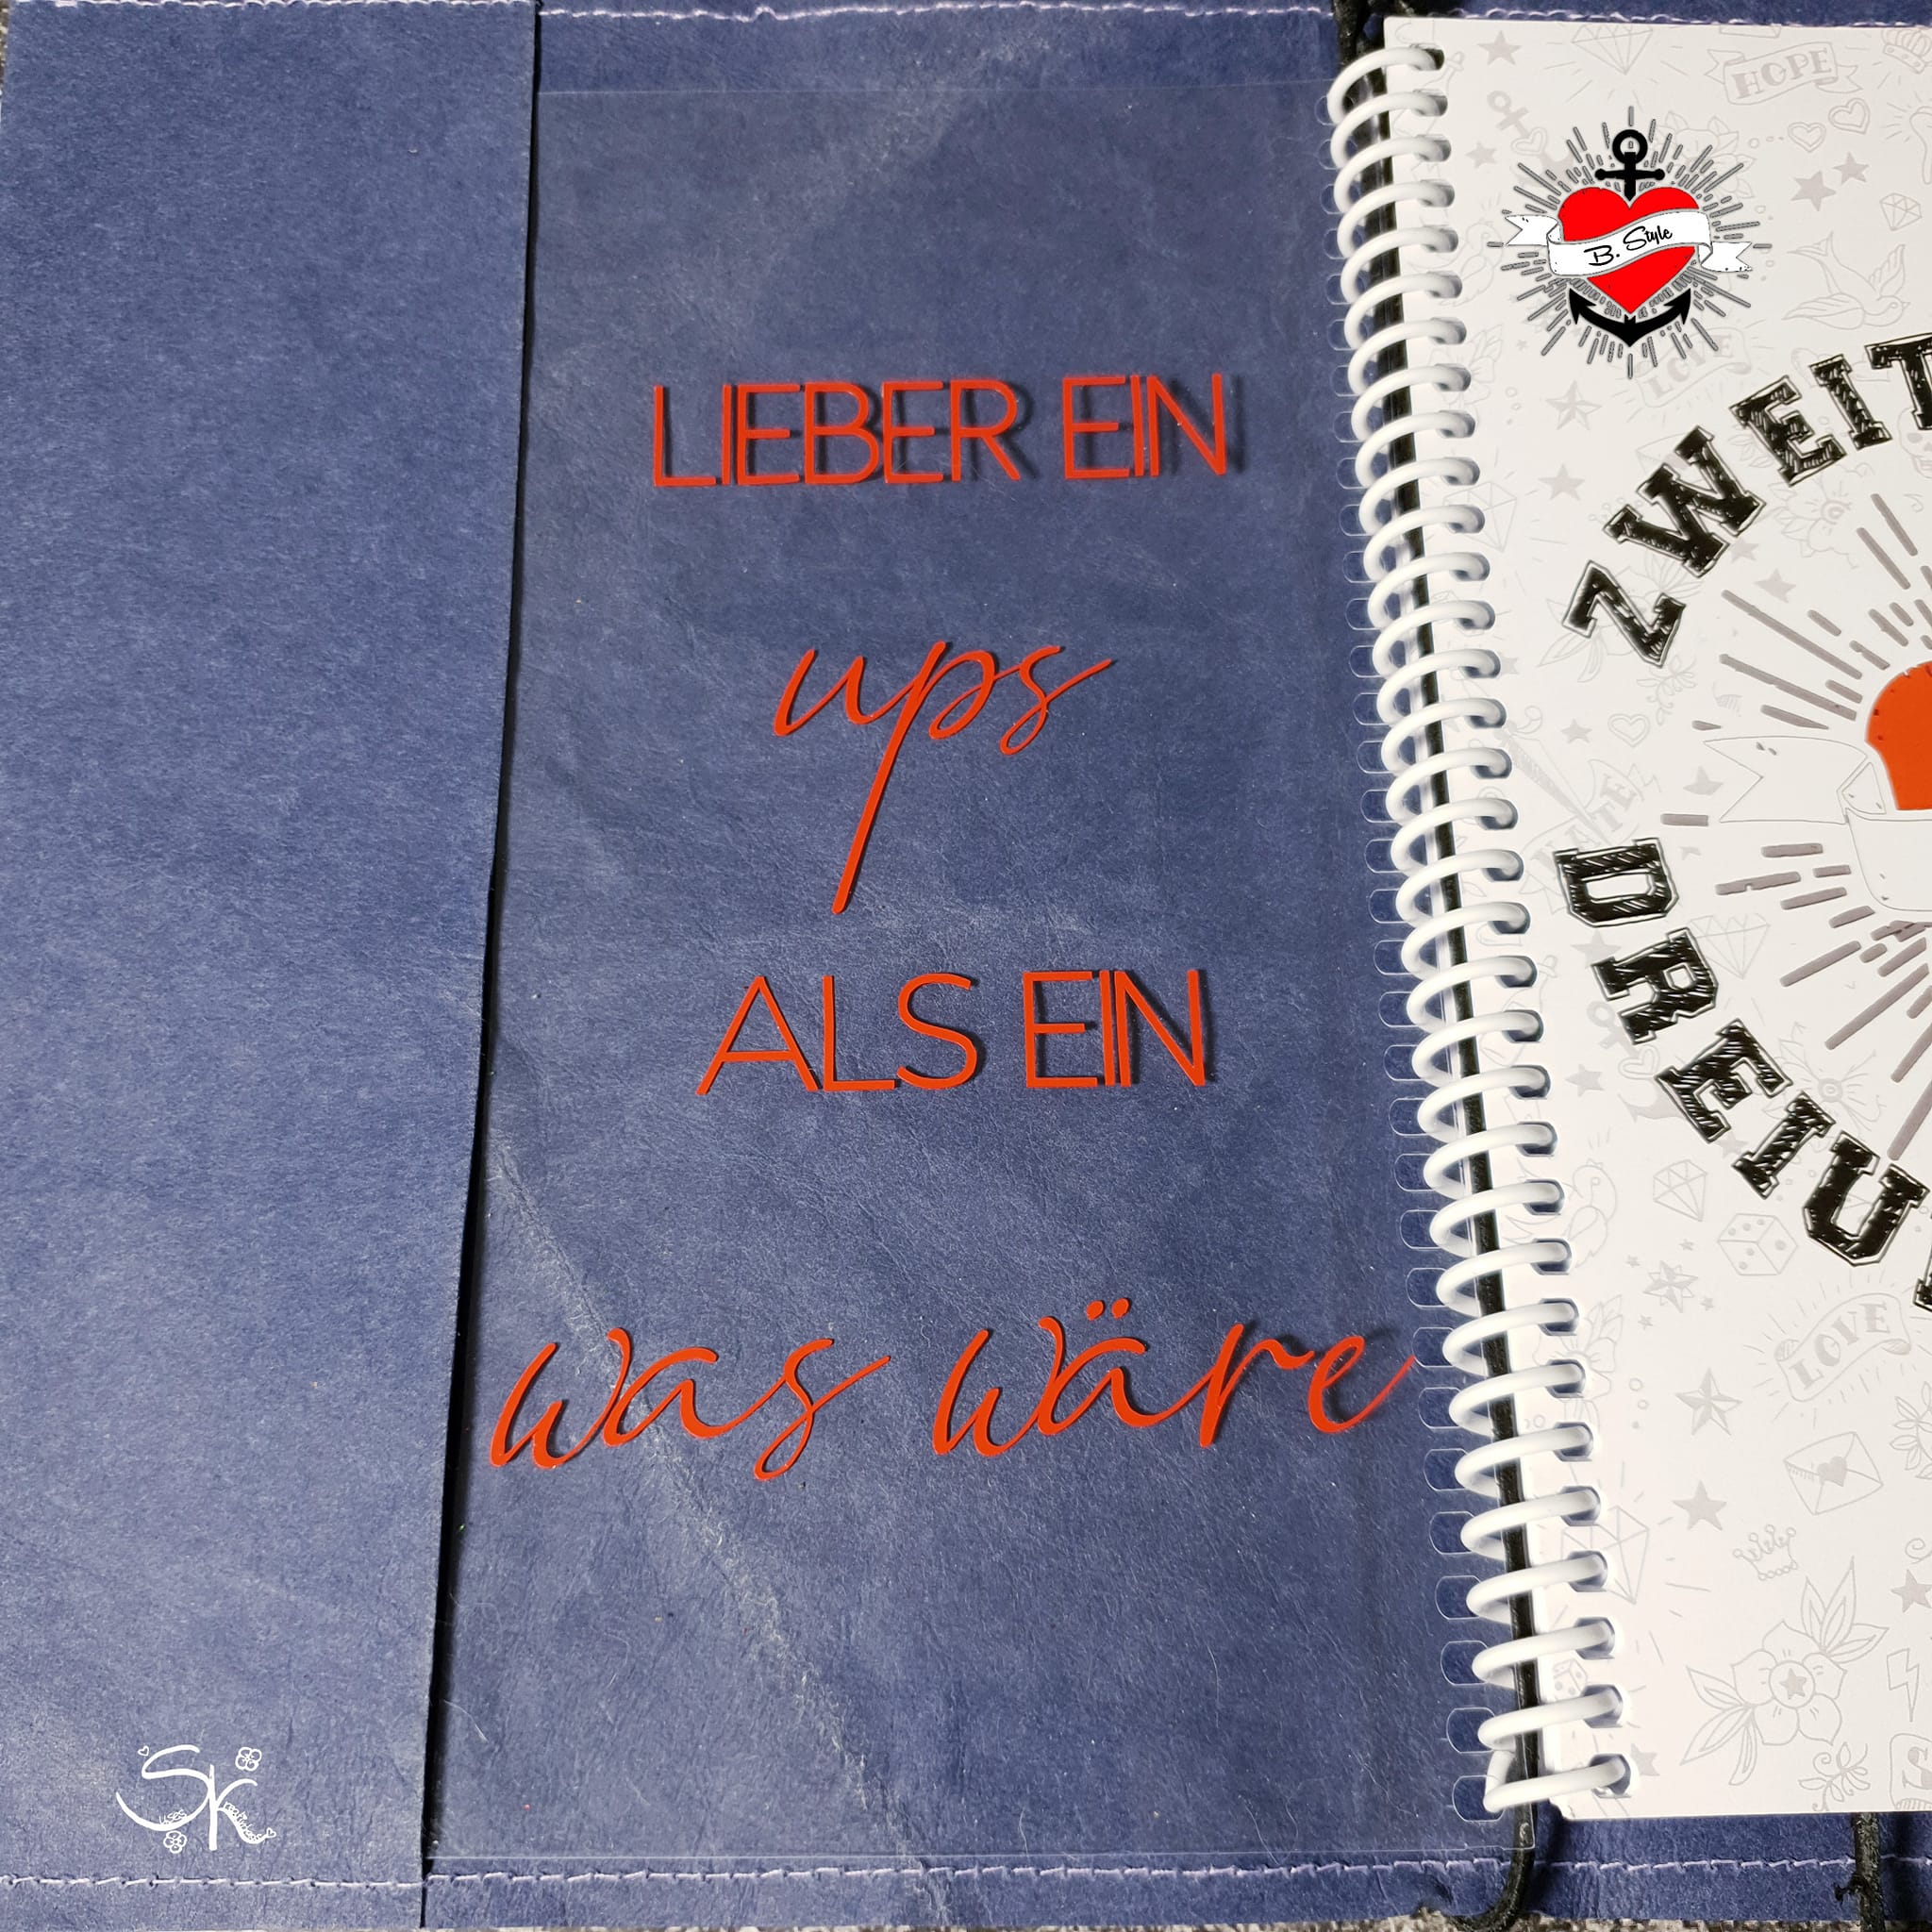 LIEBER EIN
ups
ALS EIN
was wäre
HOPE
B. Style
LOVE
ZWEIT
HATE
DREIU
LOVE
SK